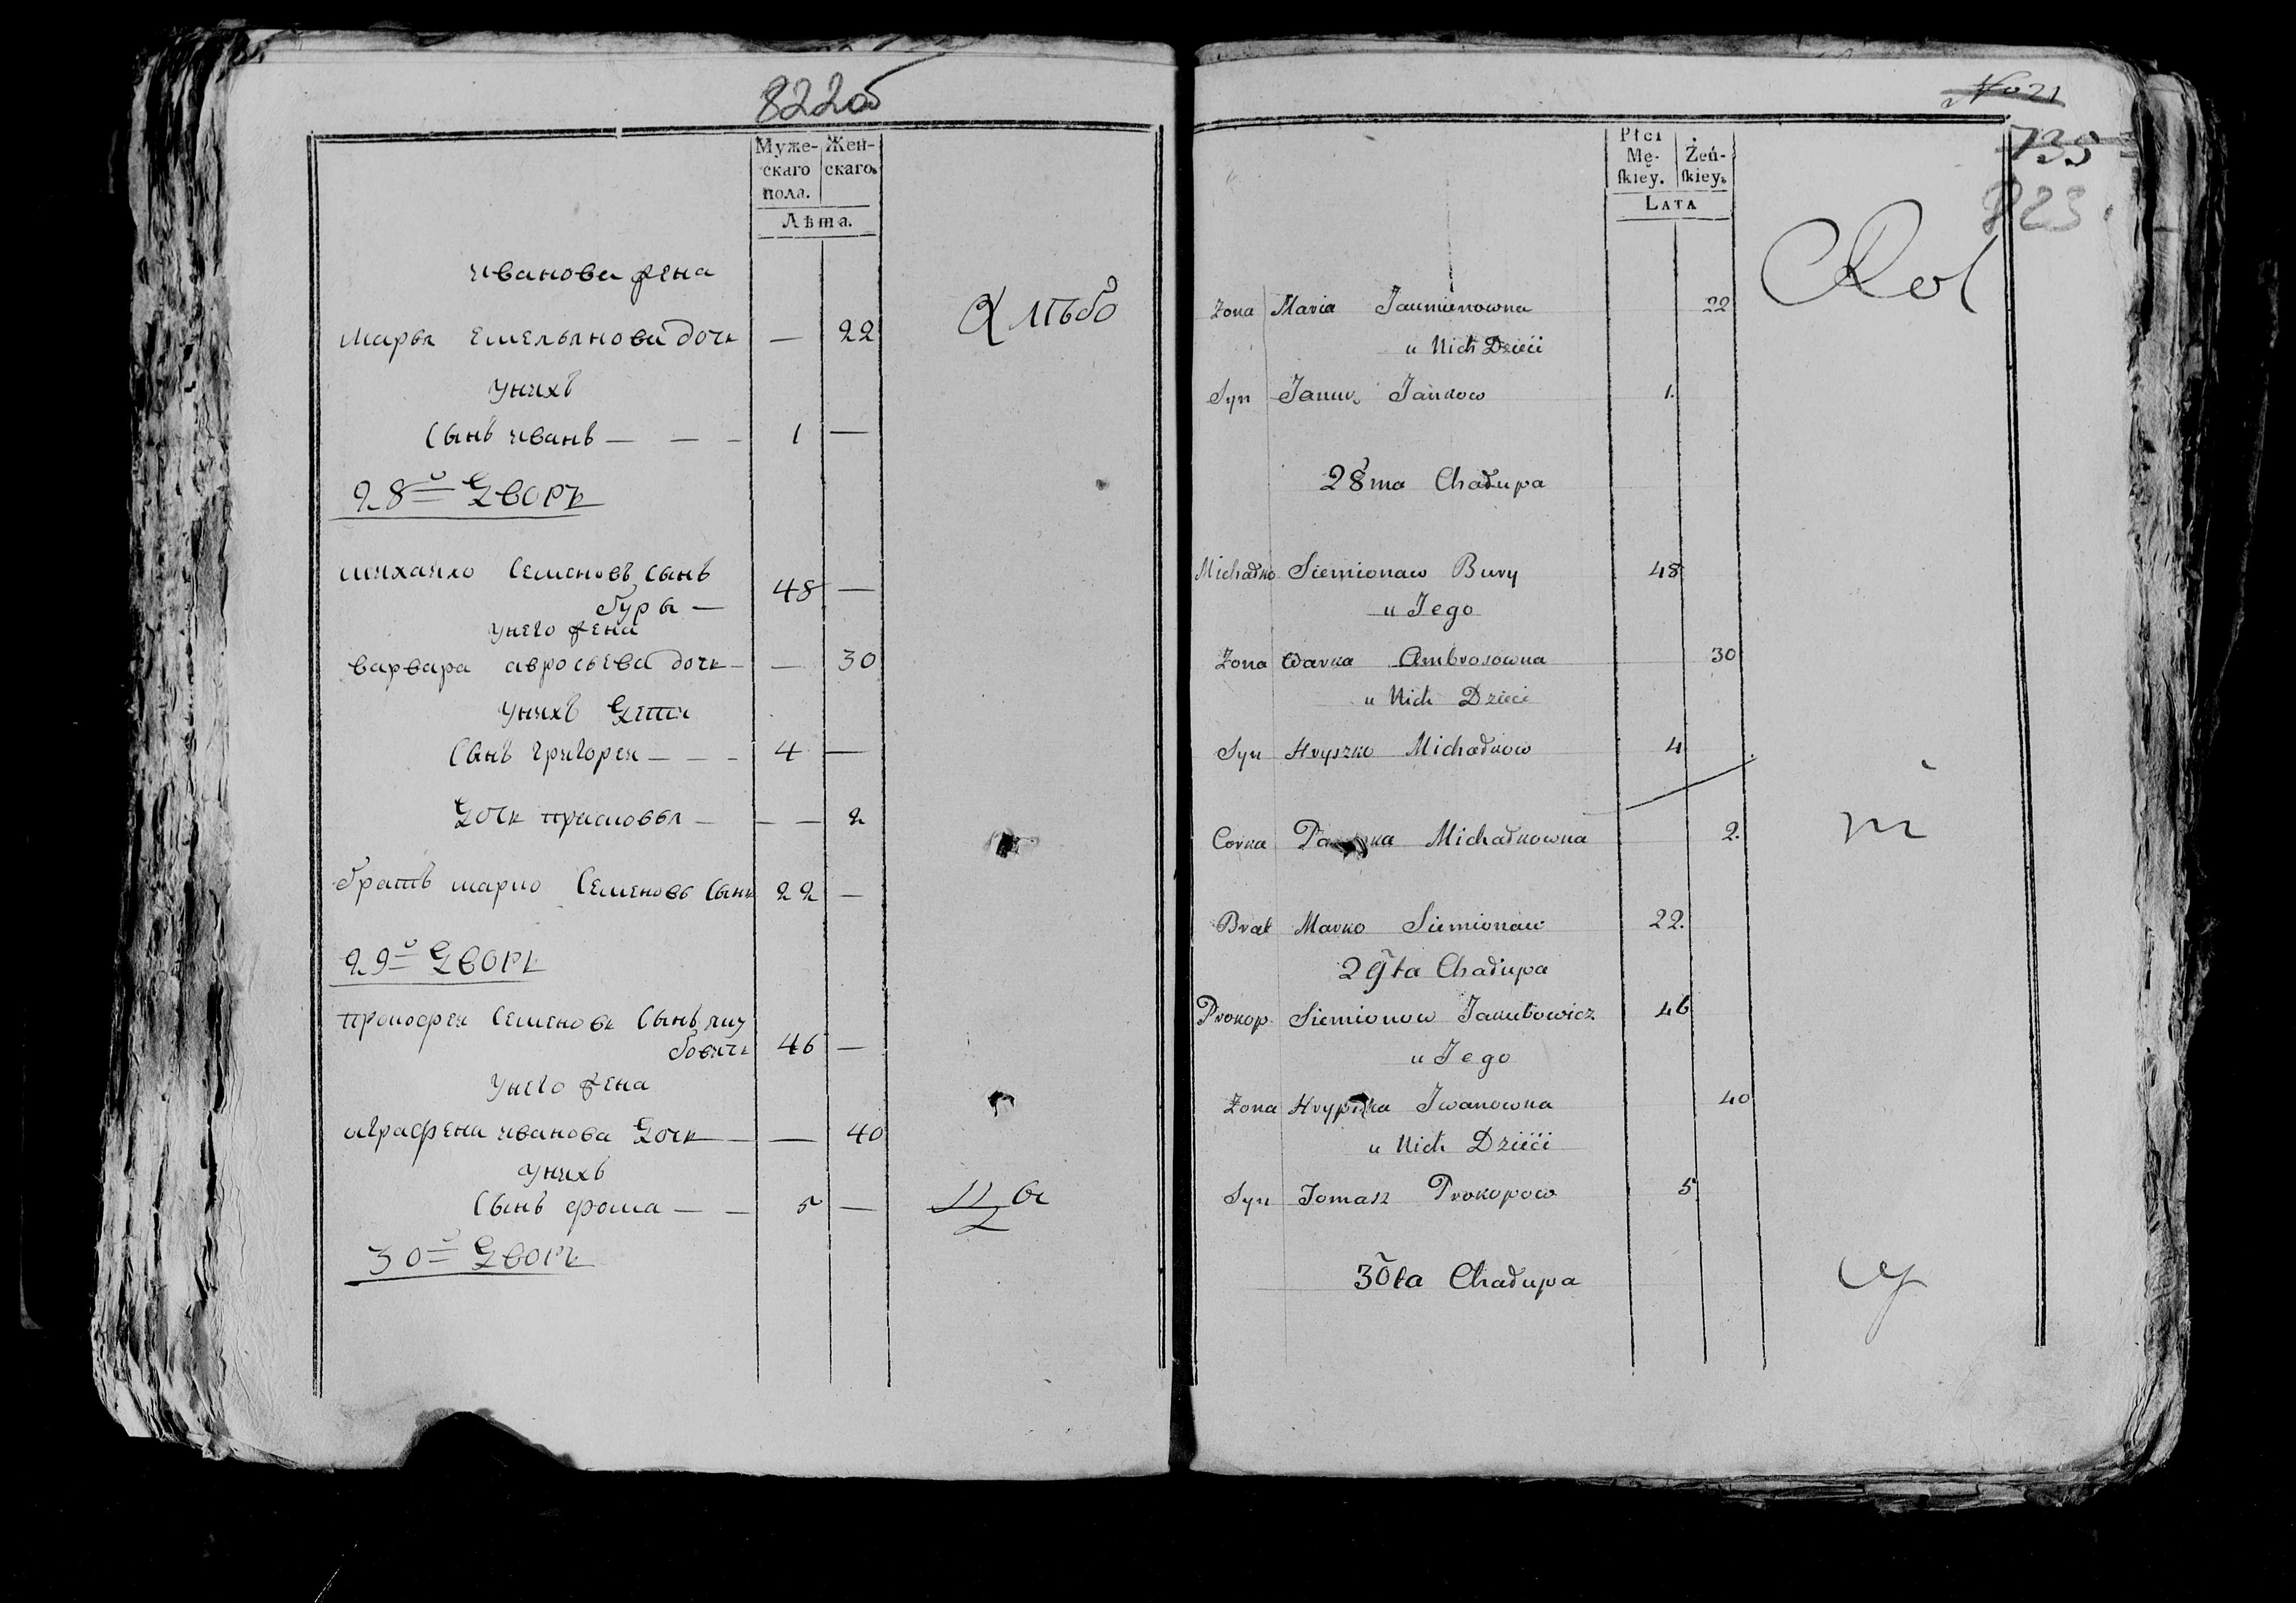 822об
Муже-
скаго
пола.
Жен-
скаго.
Лѣта.
ивановa жена
марья Емельянова дочь — 22
унихъ
Сынъ иванъ — — — 1 —
28й Дворъ
михайло Семеновъ Сынъ
буры — 48 —
унего жена
варвара авросьева дочь — — 30
унихъ Дети
Сынъ григорей — — — 4 —
Дочь прасковья — — — 2
братъ марко Семеновъ Сынъ 22 —
29й Дворъ
прокофей Семеновъ Сынъ яку
бовичь 46 —
унего жена
аграфена иванова Дочь — — 40
унихъ
Сынъ фома — — 5 —
30й Дворъ
No 21
735
823
Płci
Mę-
ſkiey.
Żeń-
ſkiey.
Lata
Żona Maria Jaumienowna 22
u Nich Dzieci
Syn Jankow 1.
28ma Chałupa
Michałko Siemionaw Bury 48
u Jego
Żona Warka Ambrosowna 30
u Nich Dzieci
Syn Hryszko Michałkow 4
Corka Michałkowna 2.
Brat Marko Siemionaw 22.
29ta Chałupa
Prokop Siemionow Jakubowicz 46
u Jego
Żona Iwanowna 40
u Nich Dzieci
Syn Tomasz Prokopow 5
30ta Chałupa